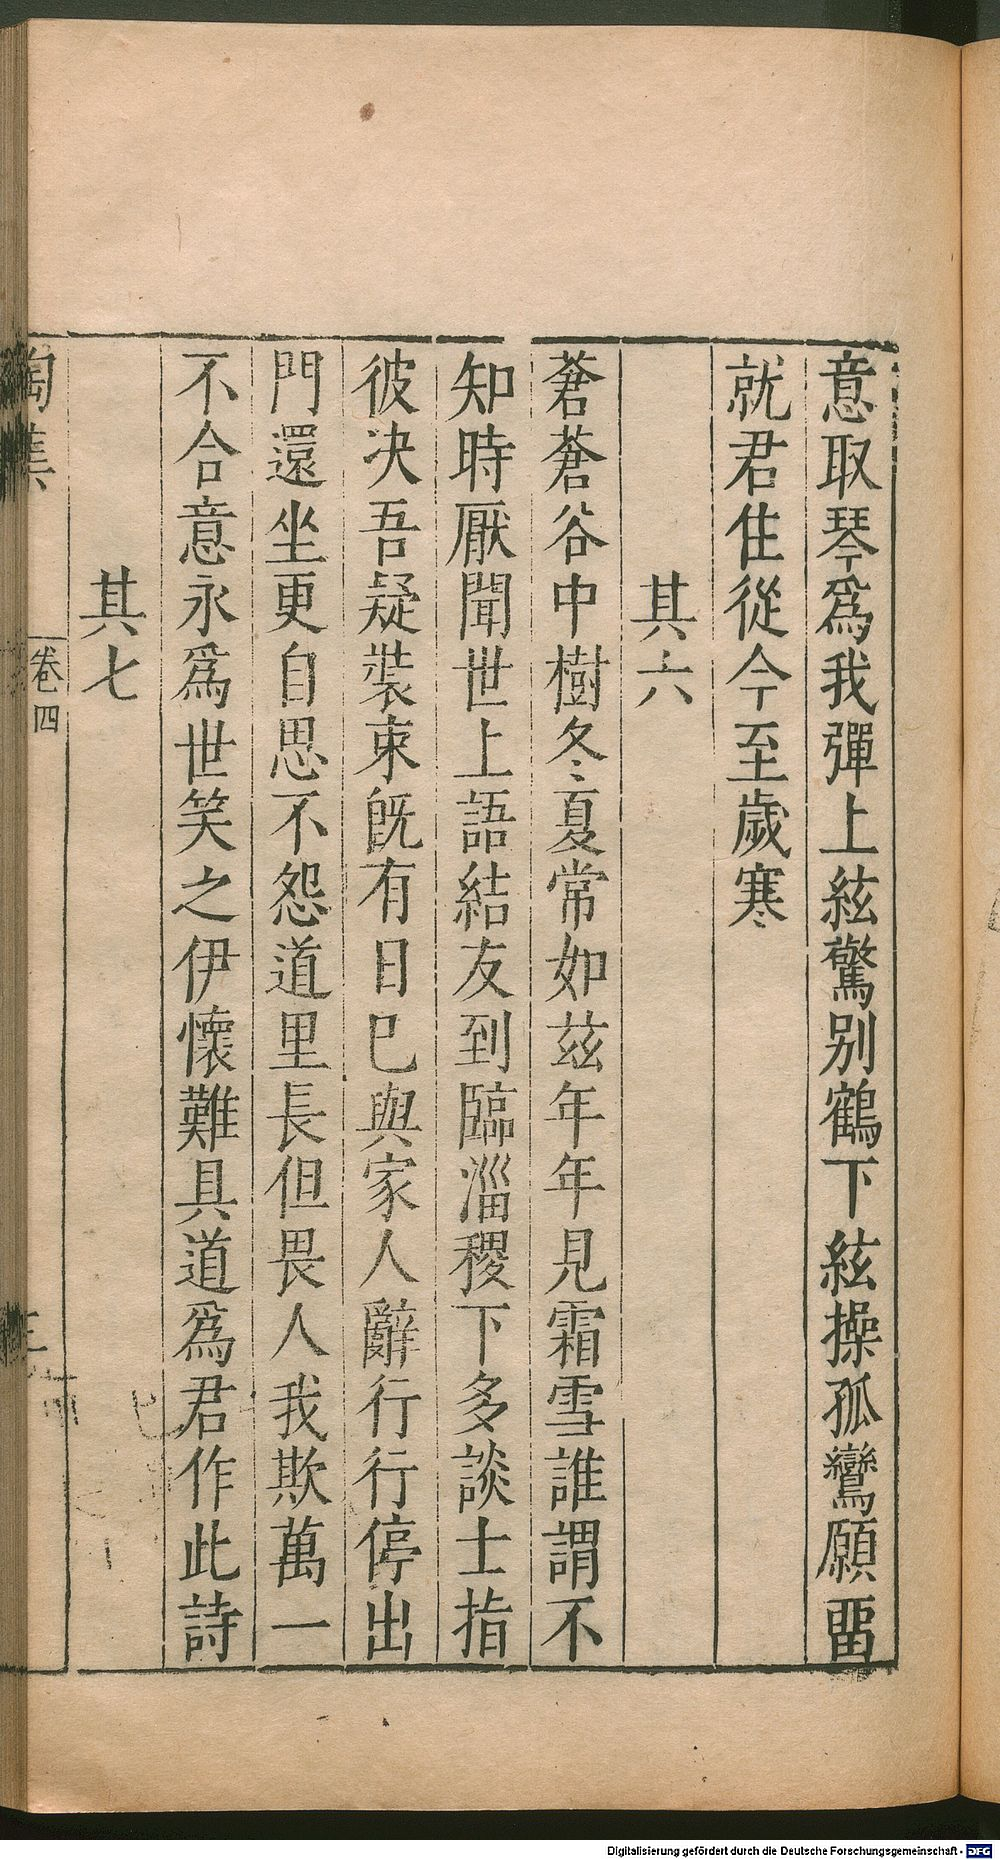 意取琴爲我彈上絃驚别鶴下絃操孤鸞願畱
就君住從今至歲寒
其六
蒼蒼谷中樹冬夏常如茲年年見霜雪誰謂不
知時厭聞世上語結友到臨淄稷下多談士指
彼决吾疑裝束旣有日巳與家人辭行行停出
門還坐更自思不怨道里長但畏人我欺萬一
不合意永爲世笑之伊懷難具道爲君作此詩
其七
陶集
卷四
Digitalisierung gefördert durch die Deutsche Forschungsgemeinschaft - DFG